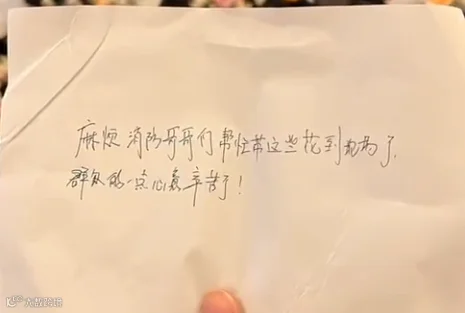 麻烦消防哥哥们帮忙带这些花到现场了,
群众的一点心意辛苦了!